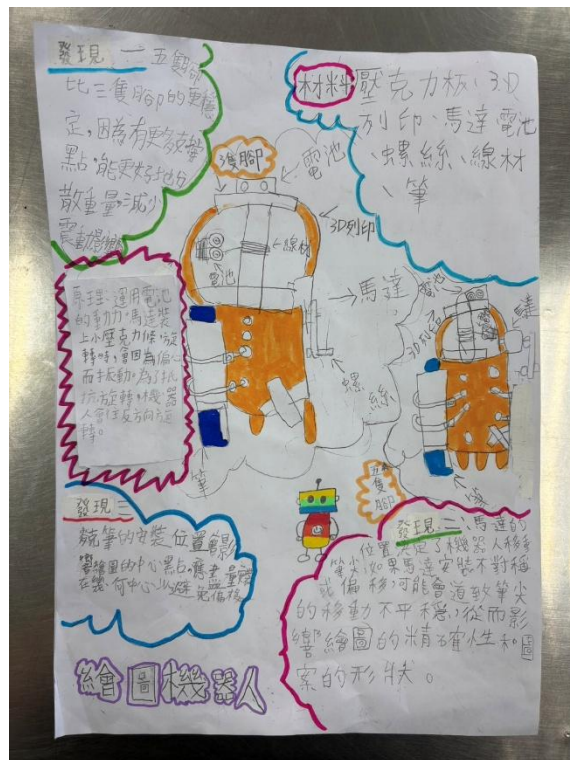 發現一 五隻腳
比三隻腳的更穩
定,因為有更多支撐
點,能更好地分
散重量,減少
震動影響
材料 壓克力板、3D
列印、馬達、電池
、螺絲、線材
、筆
3隻腳
電池
3D列印
線材
電池
馬達
螺絲
筆
原理:運用電池
的動力,馬達裝
上小壓克力條,旋
轉時,會因為偏心
而振動,為了抵
抗旋轉,機器
人會往反方向旋
轉。
電池
3D列印
馬達
筆
五隻腳
發現三
競筆的安裝位置會影
響繪圖的中心點,應盡量裝
在幾何中心以避免偏移
發現二、馬達的
位置決定了機器人移動
筆尖,如果馬達安裝不對稱
或偏移,可能會導致筆尖
的移動不平穩,從而影
響繪圖的精確性和圖
案的形狀。
繪圖機器人